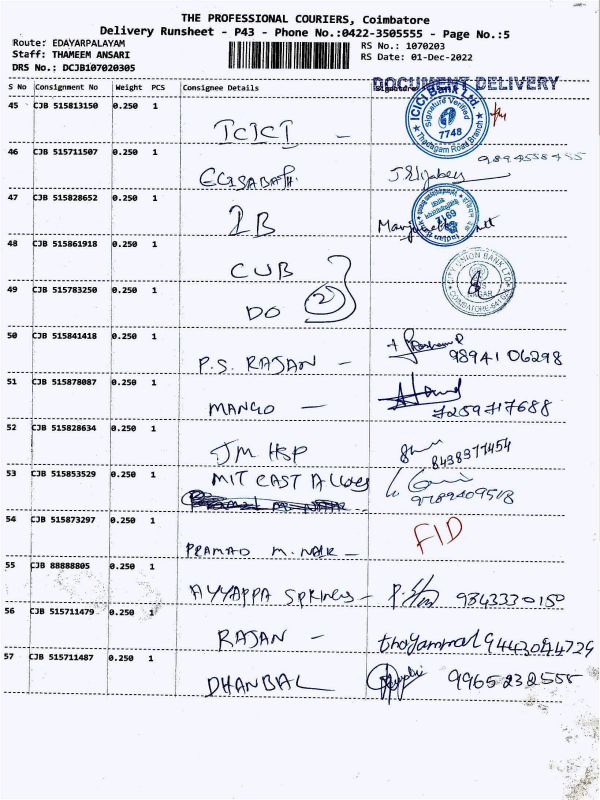 THE PROFESSIONAL COURIERS, Coimbatore
Delivery Runsheet - P43 - Phone No.:0422-3505555 - Page No.:5
Route: EDAYARPALAYAM
Staff: THAMEEM ANSARI
DRS No.: DCJB107020305
RS No.: 1070203
RS Date: 01-Dec-2022
S No Consignment No Weight PCS Consignee Details Signature
DOCUMENT DELIVERY
45 CJB 515813150 0.250 1 ICICI -
ICICI Bank Ltd Signature Verified 7748 Thadagam Road Branch
46 CJB 515711507 0.250 1
47 CJB 515828652 0.250 1 IB
48 CJB 515861918 0.250 1 CUB
CITY UNION BANK LTD
49 CJB 515783250 0.250 1 DO 2
50 CJB 515841418 0.250 1 P.S. RAJAN - 98941 06298
51 CJB 515878087 0.250 1 MANGO - 7259717688
52 CJB 515828634 0.250 1 JM HSP 8438377454
53 CJB 515853529 0.250 1 MIT CAST ALLOYS
54 CJB 515873297 0.250 1 PRAMAD M. NAIR - FID
55 CJB 88888805 0.250 1 AYYAPPA SPRINGS - 9843330150
56 CJB 515711479 0.250 1 RAJAN - thayammal 9443094729
57 CJB 515711487 0.250 1 DHANBAL 9965232555